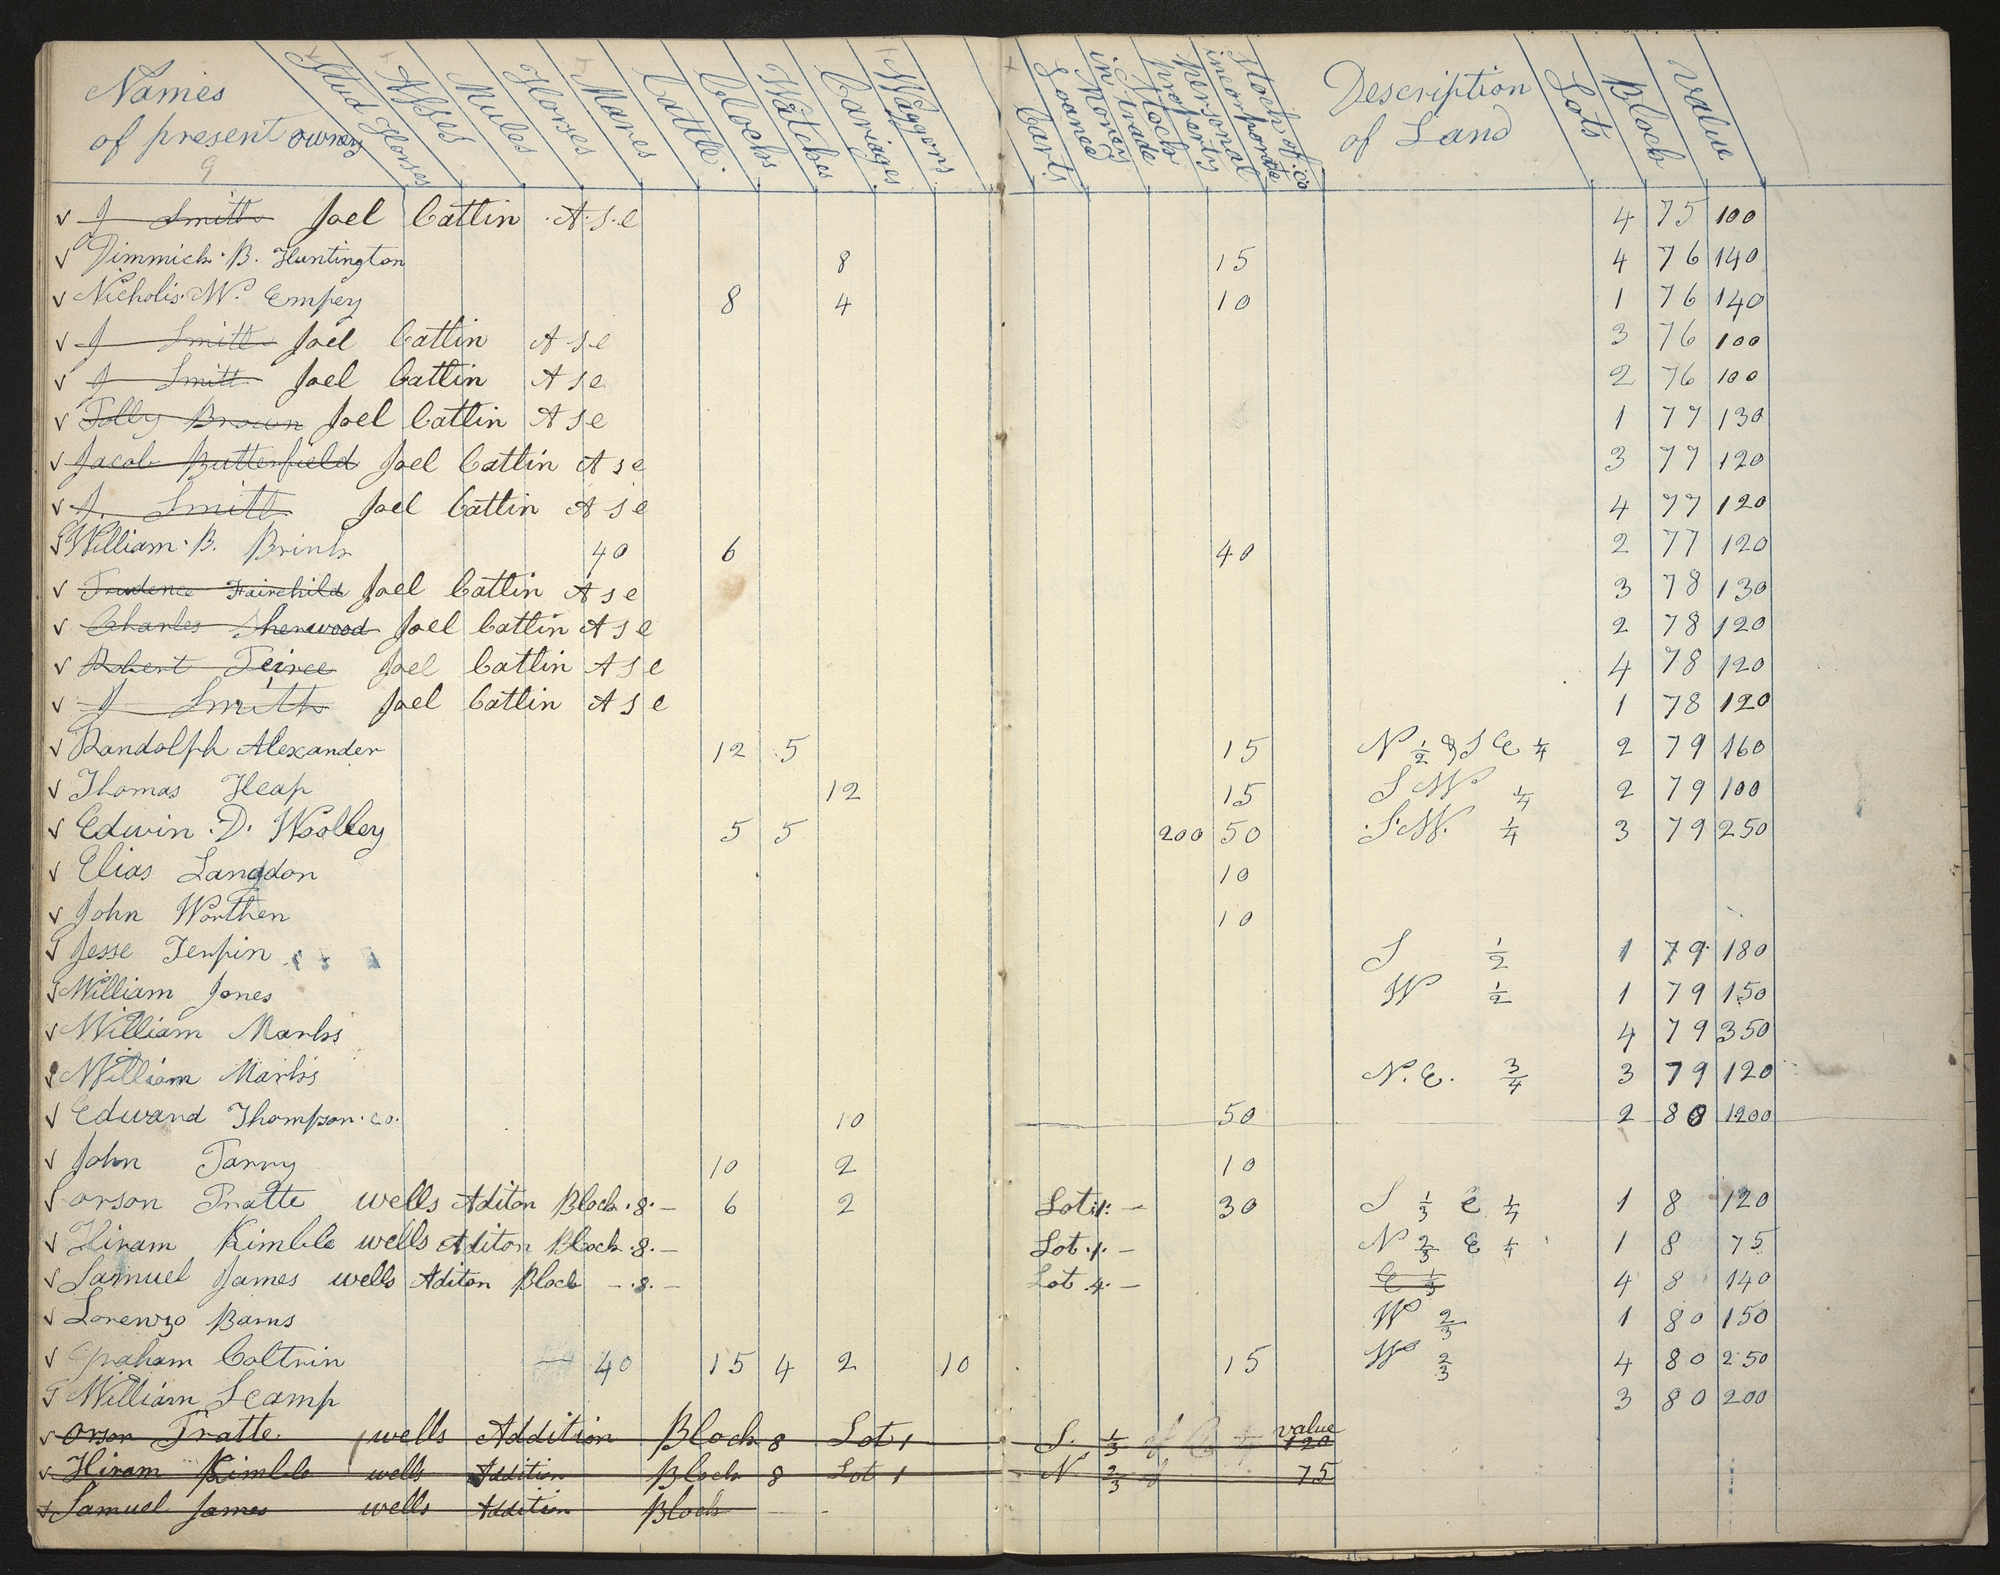 Names
of present owners
9
Stud Horses
Asses
Mules
Horses
Mares
Cattle.
Clocks
Watches
Cariages
Waggons.
Carts
Loaned
Money
in trade
Stock
property
personal
incorporate
Stock of co
Description
of Land
Lots
Block
Value
J Smith Joel Catlin A.S.e 4 75 100
Dimmick B. Huntington 8 15 4 76 140
Nicholis W. Empey 8 4 10 1 76 140
J Smith Joel Catlin A S e 3 76 100
J Smith Joel Catlin A S e 2 76 100
Polly Brown Joel Catlin A S e 1 77 130
Jacob Butterfield Joel Catlin A S e 3 77 120
J. Smith Joel Catlin A S e 4 77 120
William B. Brink 40 6 40 2 77 120
Prudence Fairchild Joel Catlin A S e 3 78 130
Charles Sherwood Joel Catlin A S e 2 78 120
Robert Peirce Joel Catlin A S e 4 78 120
J Smith Joel Catlin A S e 1 78 120
Randolph Alexander 12 5 15 N 1/2 & S E 1/4 2 79 160
Thomas Heap 12 15 S W 1/4 2 79 100
Edwin D. Woolley 5 5 200 50 S.W. 1/4 3 79 250
Elias Langdon 10
John Worthen 10
Jesse Terpin S 1/2 1 79 180
William Jones W 1/2 1 79 150
William Marks 4 79 350
William Marks N.E. 3/4 3 79 120
Edward Thompson co. 10 50 2 80 1200
John Parry 10 2 10
orson Pratte wells Aditon Block 8. — 6 2 Lot 1. — 30 S 1/3 E 1/4 1 8 120
Hiram Kimble wells Aditon Block 8. — Lot 1. — N 2/3 E 1/4 1 8 75
Samuel James wells Aditon Block — 8. — Lot 4. — E 1/3 4 8 140
Lorenzo Barns W 2/3 1 80 150
Graham Coltrin 40 15 4 2 10 15 W 2/3 4 80 250
William Scamp 3 80 200
orson Pratte. wells Addition Block 8 Lot 1 S. 1/3 of value 120
Hiram Kimble wells Addition Block 8 Lot 1 N 2/3 of 75
Samuel James wells Addition Block